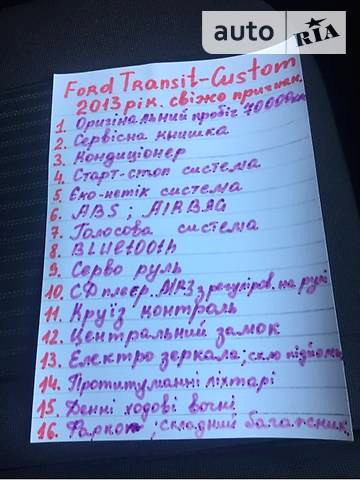 auto RIA
Ford Transit-Custom
2013 рік. свіжо пригнан.
1. Оригінальний пробіг 70000км
2. Сервісна книшка
3. Кондиціонер
4. Старт-стоп система
5. Еко-нетік система
6. ABS ; AIRBAG
7. Голосова система
8. BLUEtooth
9. Серво руль
10. СД плеєр. MP3 з регуліров. на рулі
11. Круїз контроль
12. Центральний замок
13. Електро зеркала; скло підйомн.
14. Протитуманні ліхтарі
15. Денні ходові вогні
16. Фаркоп; складний багажник.